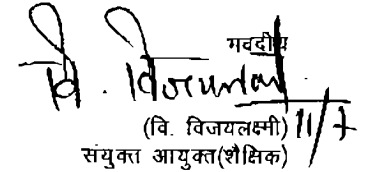 भवदीय
वि. विजयलक्ष्मी
(वि. विजयलक्ष्मी) 11/7
संयुक्त आयुक्त(शैक्षिक)